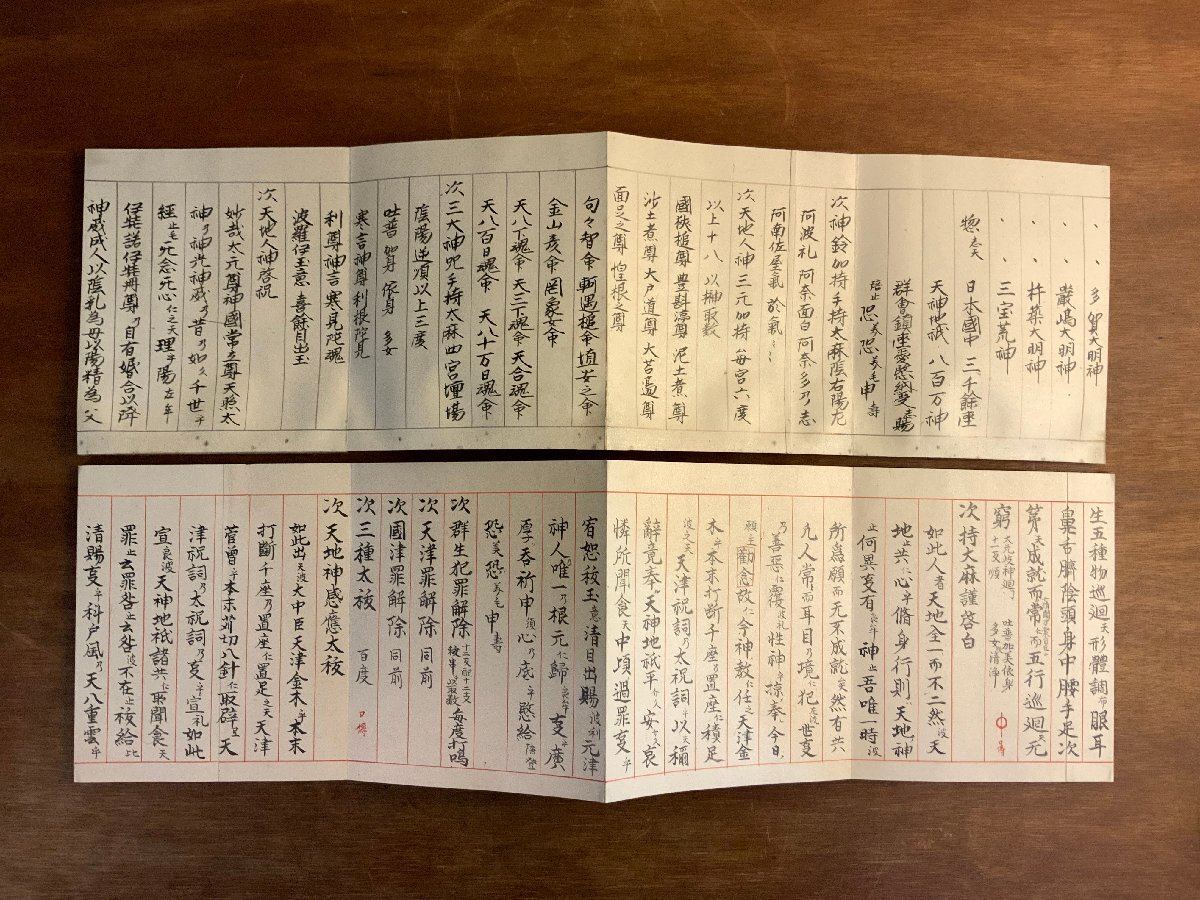 、、、多賀大明神
、、、嚴嶋大明神
、、、杵築大明神
、、、三宝荒神
惣志天 日本國中 三千餘座
天神地祇 八百万神
群會鎮座愛愍納受志賜
陪止 恐美恐美毛申 寿
次神鈴加持手持太麻陰右陽左
阿波礼 阿奈面白 阿奈多乃志
阿南佐屋氣 於氣〻〻
次天地人神三元加持 毎宮六度
以上十八 以榊取数
國狭槌尊 豊斟渟尊 泥土煮尊
沙土煮尊 大戸道尊 大苫邊尊
面足之尊 惶根之尊
句々智命 軻遇槌命 埴安之命
金山彦命 罔象女命
天八下魂命 天三下魂命 天合魂命
天八百日魂命 天八十万日魂命
次三大神咒手持太麻四宮壇場
陰陽逆順以上三度
吐普加身依身多女
寒言神尊利根陀見
利尊神言寒見陀魂
波羅伊玉意喜餘目出玉
次天地人神啓祝
妙哉太元尊神國常立尊天照太
神乃神光神威乃昔乃如久千世乎
經止毛元念元心仁之天理乎陽左牟
伊弉諾伊弉冊尊乃自有婚合以降
神威成人以陰乳為母以陽精為父
生五種物巡廻天形體調而眼耳
鼻舌臍陰頭身中腰手足次
第天成就而常仁而五行巡迴天元
窮
次持大麻謹啓白
如此人者天地全一而不二然波天
地止共仁心乎脩身行則天地乃神
止何異支有良牟神止吾唯一時波
所為願而无不成就矣然有共
凢人常而耳目乃境仁犯左波世支
乃善悪仁覆波礼性神乎掠奉今日
願主勸念故仁今神教仁任之天津金
木乎本末打断千座乃置座仁積足
波之天天津祝詞乃太祝詞乎以天稱
辭竟奉留天神地祇平介久安介久哀
憐所聞食天中頃過罪支乎
宥恕秡玉意清目出賜波利元津
神人唯一乃根元仁歸良牟支乎廣
厚久呑祈申須心乃底乎愍給陪登
恐美恐美毛申寿
次群生犯罪解除 毎度打鳴
次天津罪解除 同前
次國津罪解除 同前
次三種太秡 百度 口傳
次天地神感應太秡
如此出天波大中臣天津金木乎本末
打斷千座乃置座仁置足之天天津
菅曽乎本末苅切八針仁取辟支天
津祝詞乃太祝詞乃支乎宣礼如此
宣良波天神地祇諸共仁聞食天
罪止云罪咎止云咎波不在止秡給比
清賜支乎科戸風乃天八重雲乎